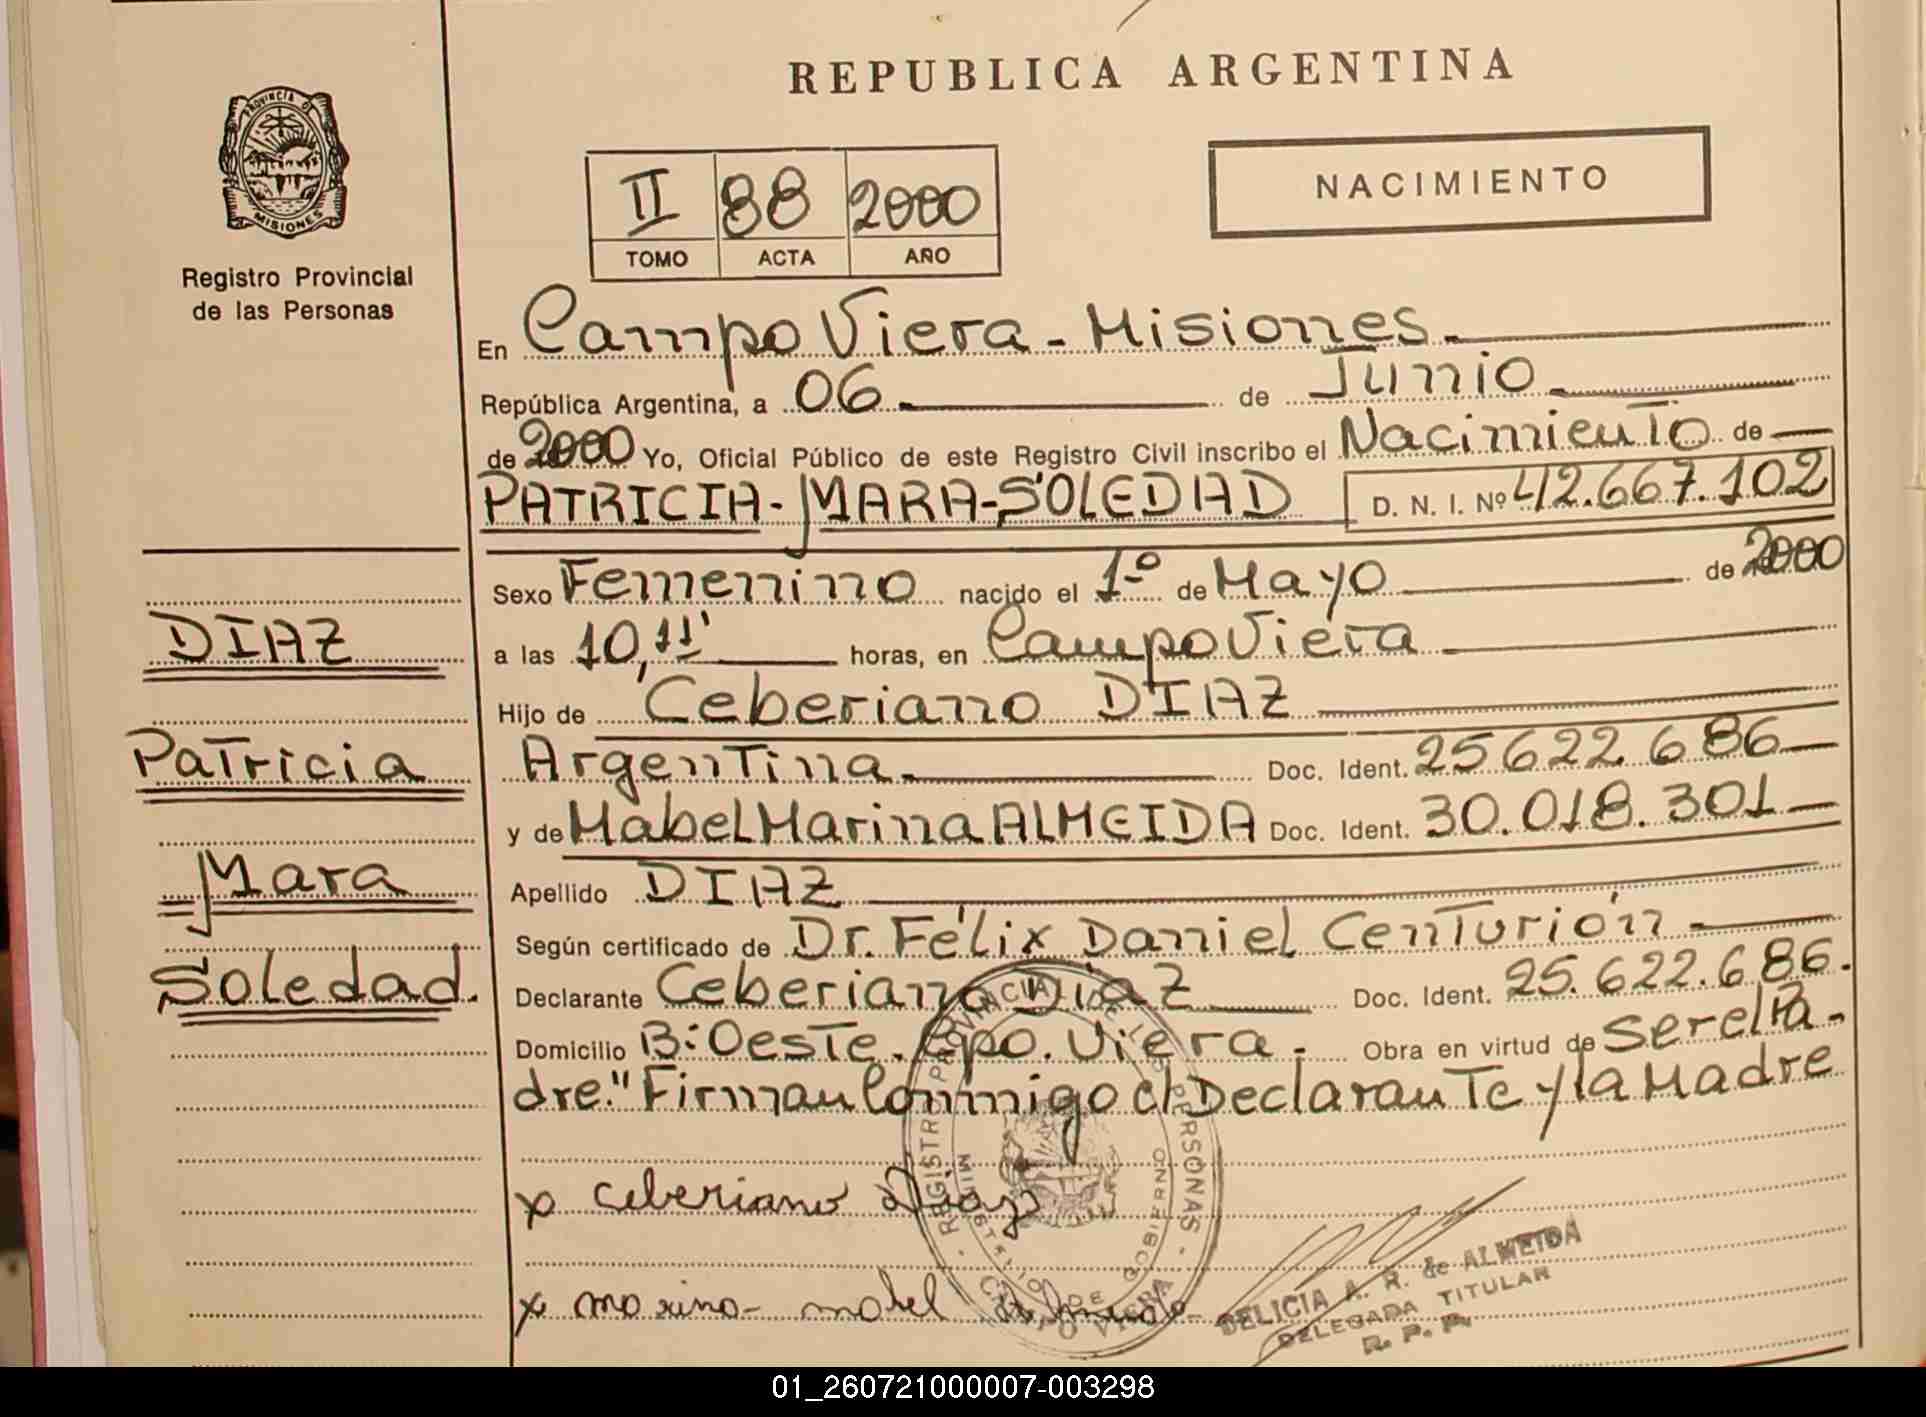 REPUBLICA ARGENTINA
PROVINCIA DE
MISIONES
Registro Provincial
de las Personas
II 88 2000
TOMO ACTA AÑO
NACIMIENTO
En Campo Viera - Misiones.
República Argentina, a 06 de Junio
de 2000 Yo, Oficial Público de este Registro Civil inscribo el Nacimiento de
PATRICIA-MARA-SOLEDAD D. N. I. Nº 42.667.102
Sexo Femenino nacido el 1º de Mayo de 2000
a las 10,11' horas, en Campo Viera
Hijo de Ceberiano DIAZ
Argentina. Doc. Ident. 25622.686
y de Mabel Marina ALMEIDA Doc. Ident. 30.018.301
Apellido DIAZ
Según certificado de Dr. Félix Daniel Centurión
Declarante Ceberiano Diaz Doc. Ident. 25.622.686.
Domicilio B: Oeste. Cpo. Viera. Obra en virtud de Ser el Pa-
dre." Firman Conmigo el Declarante y la Madre
DIAZ
Patricia
Mara
Soledad.
x Ceberiano Diaz
x marina- mabel Almeida
REGISTRO PROVINCIAL DE LAS PERSONAS
MINISTERIO DE GOBIERNO
CAMPO VIERA
DELICIA A. R. de ALMEIDA
DELEGADA TITULAR
R. P. P.
01_260721000007-003298